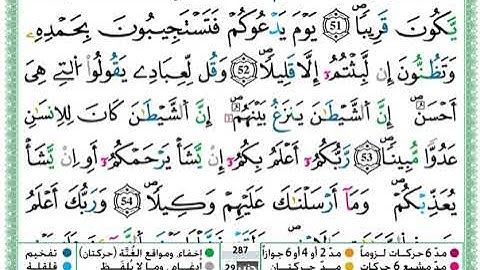 يَكُونَ قَرِيبًا ۝٥١ يَوْمَ يَدْعُوكُمْ فَتَسْتَجِيبُونَ بِحَمْدِهِۦ
وَتَظُنُّونَ إِن لَّبِثْتُمْ إِلَّا قَلِيلًا ۝٥٢ وَقُل لِّعِبَادِى يَقُولُوا۟ ٱلَّتِى هِىَ
أَحْسَنُ ۚ إِنَّ ٱلشَّيْطَـٰنَ يَنزَغُ بَيْنَهُمْ ۚ إِنَّ ٱلشَّيْطَـٰنَ كَانَ لِلْإِنسَـٰنِ
عَدُوًّا مُّبِينًا ۝٥٣ رَّبُّكُمْ أَعْلَمُ بِكُمْ ۖ إِن يَشَأْ يَرْحَمْكُمْ أَوْ إِن يَشَأْ
يُعَذِّبْكُمْ ۚ وَمَآ أَرْسَلْنَـٰكَ عَلَيْهِمْ وَكِيلًا ۝٥٤ وَرَبُّكَ أَعْلَمُ
287
مدّ ٦ حركات لزوماً مدّ ٢ أو ٤ أو ٦ جوازاً إخفاء، ومواقع الغُنَّة (حركتان) تفخيم
مدّ مشبع ٦ حركات مدّ حركتان إدغام، وما لا يُلفَظ قلقلة